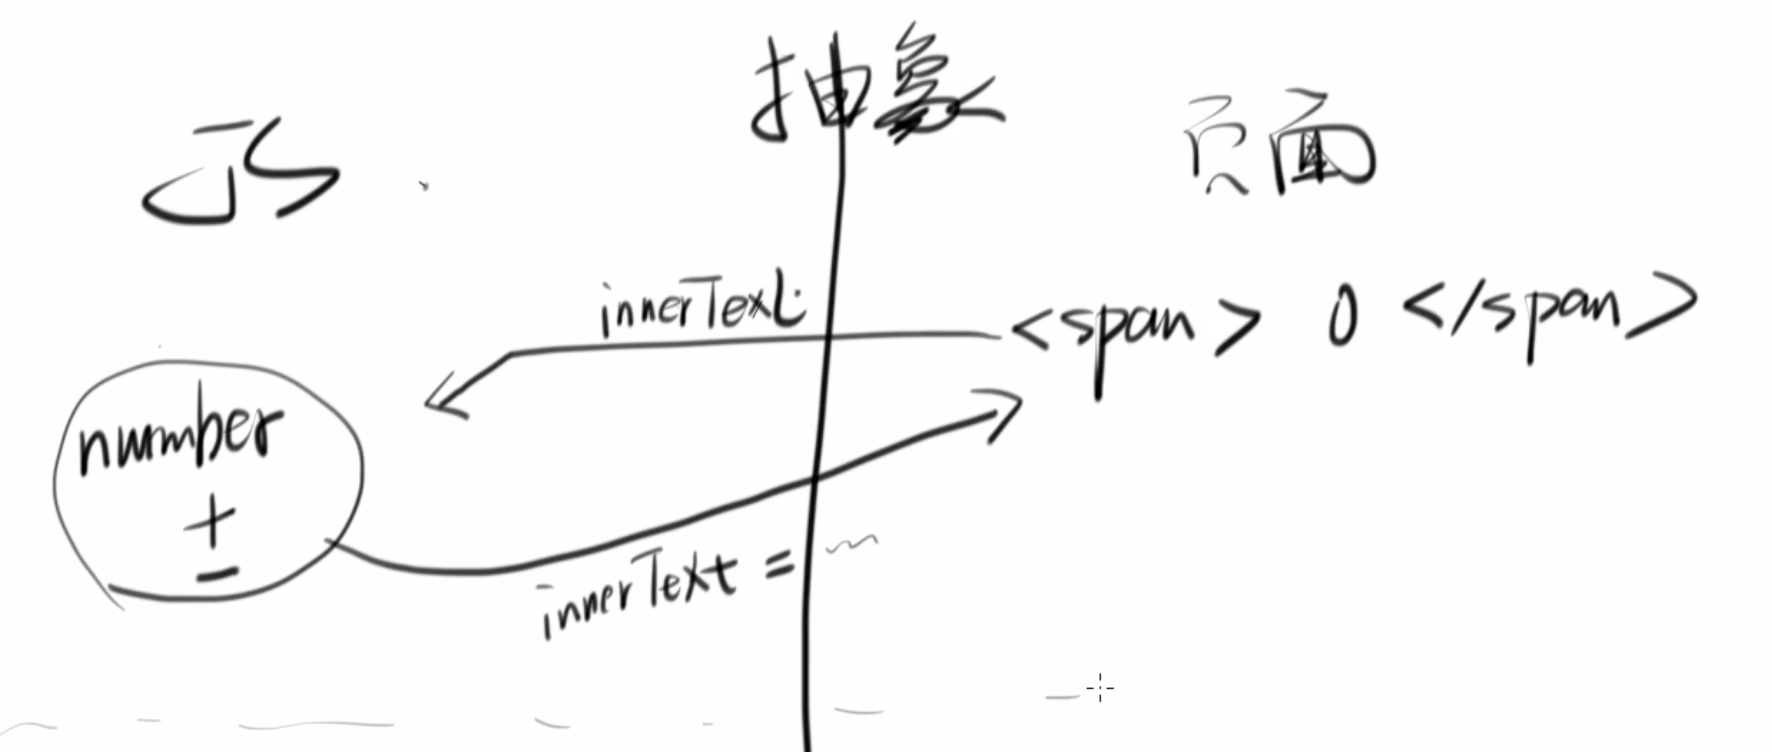 抽象
JS
页面
innerText
<span> 0 </span>
number
+
-
innerText =